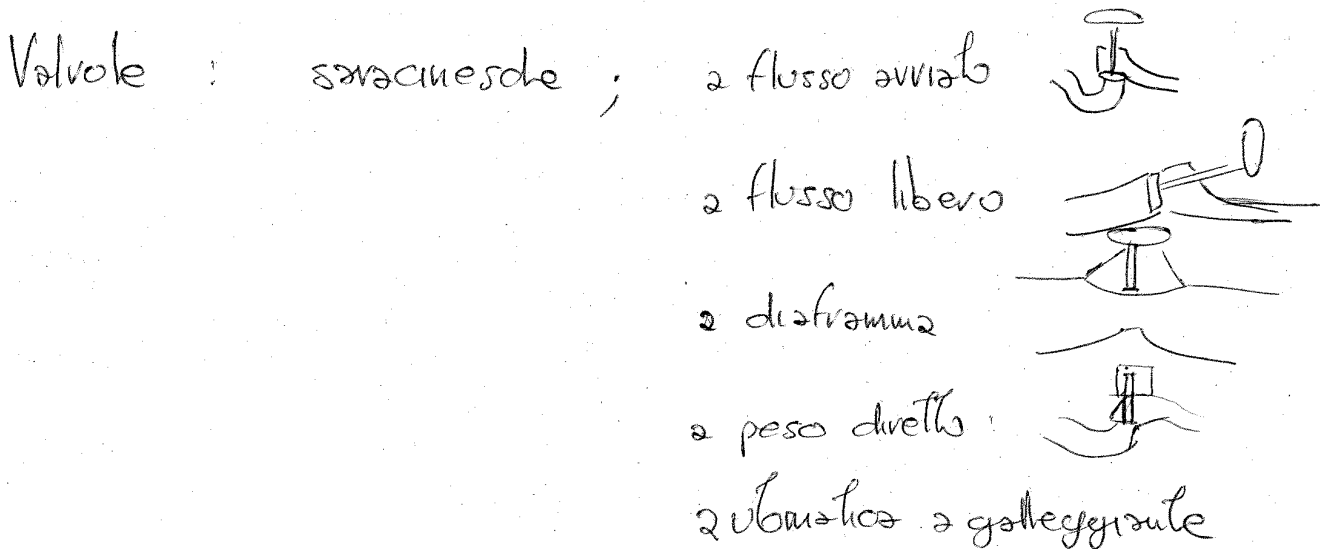 Valvole : saracinesche ; a flusso avviato
a flusso libero
a diaframma
a peso diretto :
automatica a galleggiante